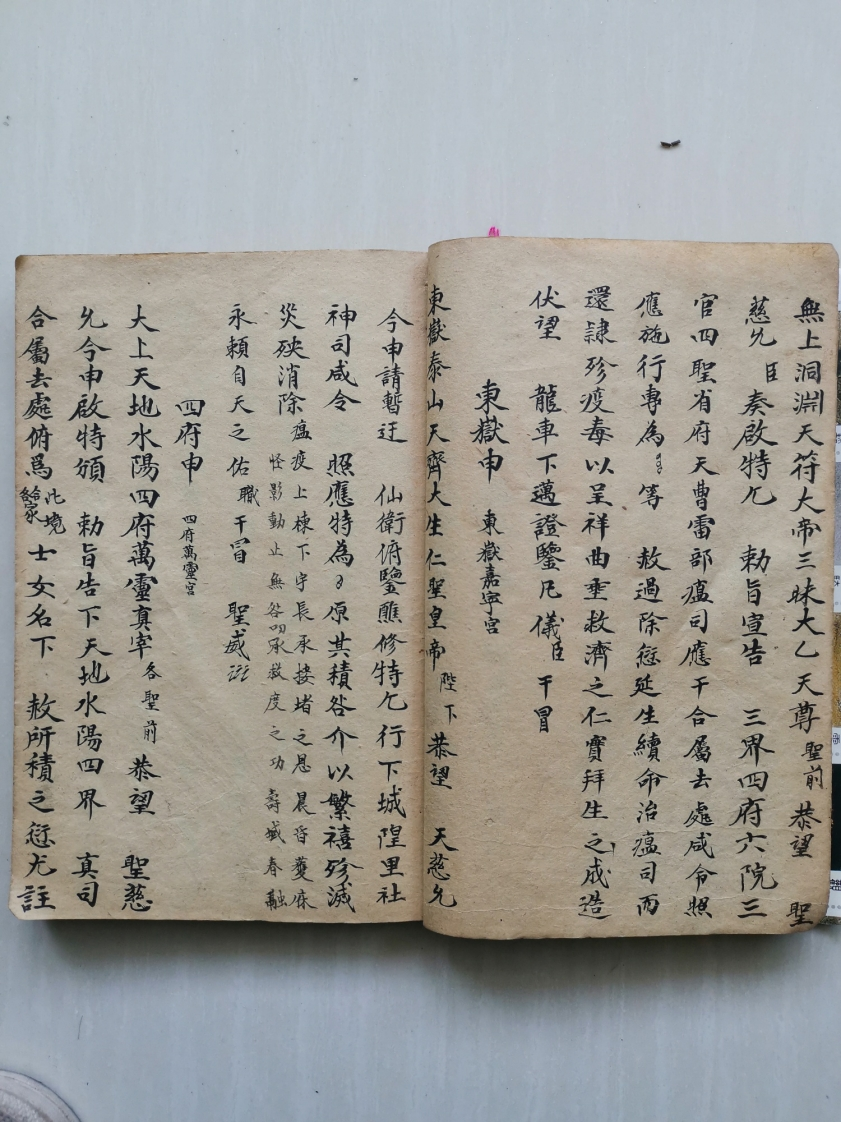 無上洞淵天符大帝三昧大乙天尊聖前 恭望 聖
慈允臣 奏啟特乞 勅旨宣告 三界四府六院三
官四聖省府天曹雷部瘟司應干合屬去處咸令照
應施行專為 等 赦過除愆延生續命治瘟司而
還隷殄疫毒以呈祥曲垂救濟之仁實拜生之成造
伏望 龍車下邁證鑒凡儀臣 干冒
東嶽申 東嶽嘉寧宮
東嶽泰山天齊大生仁聖皇帝 陛下恭望 天慈允
今申請暫迂 仙衛俯鑒醮修特乞行下城隍里社
神司咸令 照應特為 原其積咎介以繁禧殄滅
災殃消除瘟疫上棟下宇長承接堵之恩晨昏夔
怪影動止無咎叨承救度之功壽域春融
永賴自天之佑職干冒 聖威
四府申 四府萬靈宮
大上天地水陽四府萬靈真宰各聖前 恭望 聖慈
允今申啟特頒 勅旨告下天地水陽四界 真司
合屬去處俯為 比境
合家
士女名下 赦所積之愆尤註